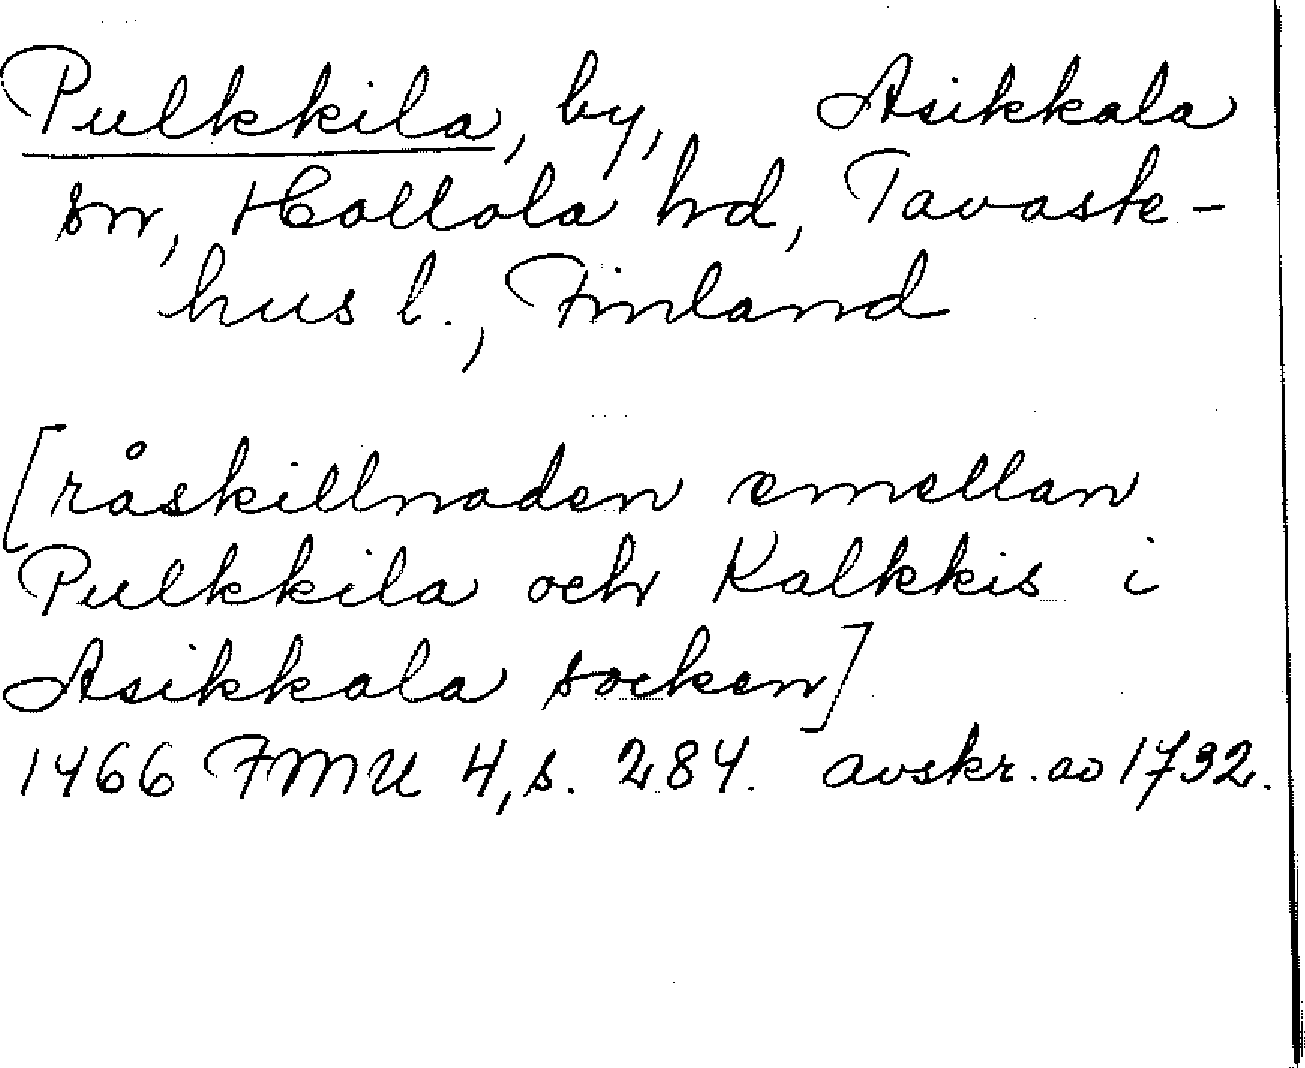 Pulkkila, by, Asikkala
sn, Hollola hd, Tavaste-
hus l., Finland
[råskillnaden emellan
Pulkkila och Kalkkis i
Asikkala socken]
1466 FMU 4, s. 284. avskr. ao 1732.